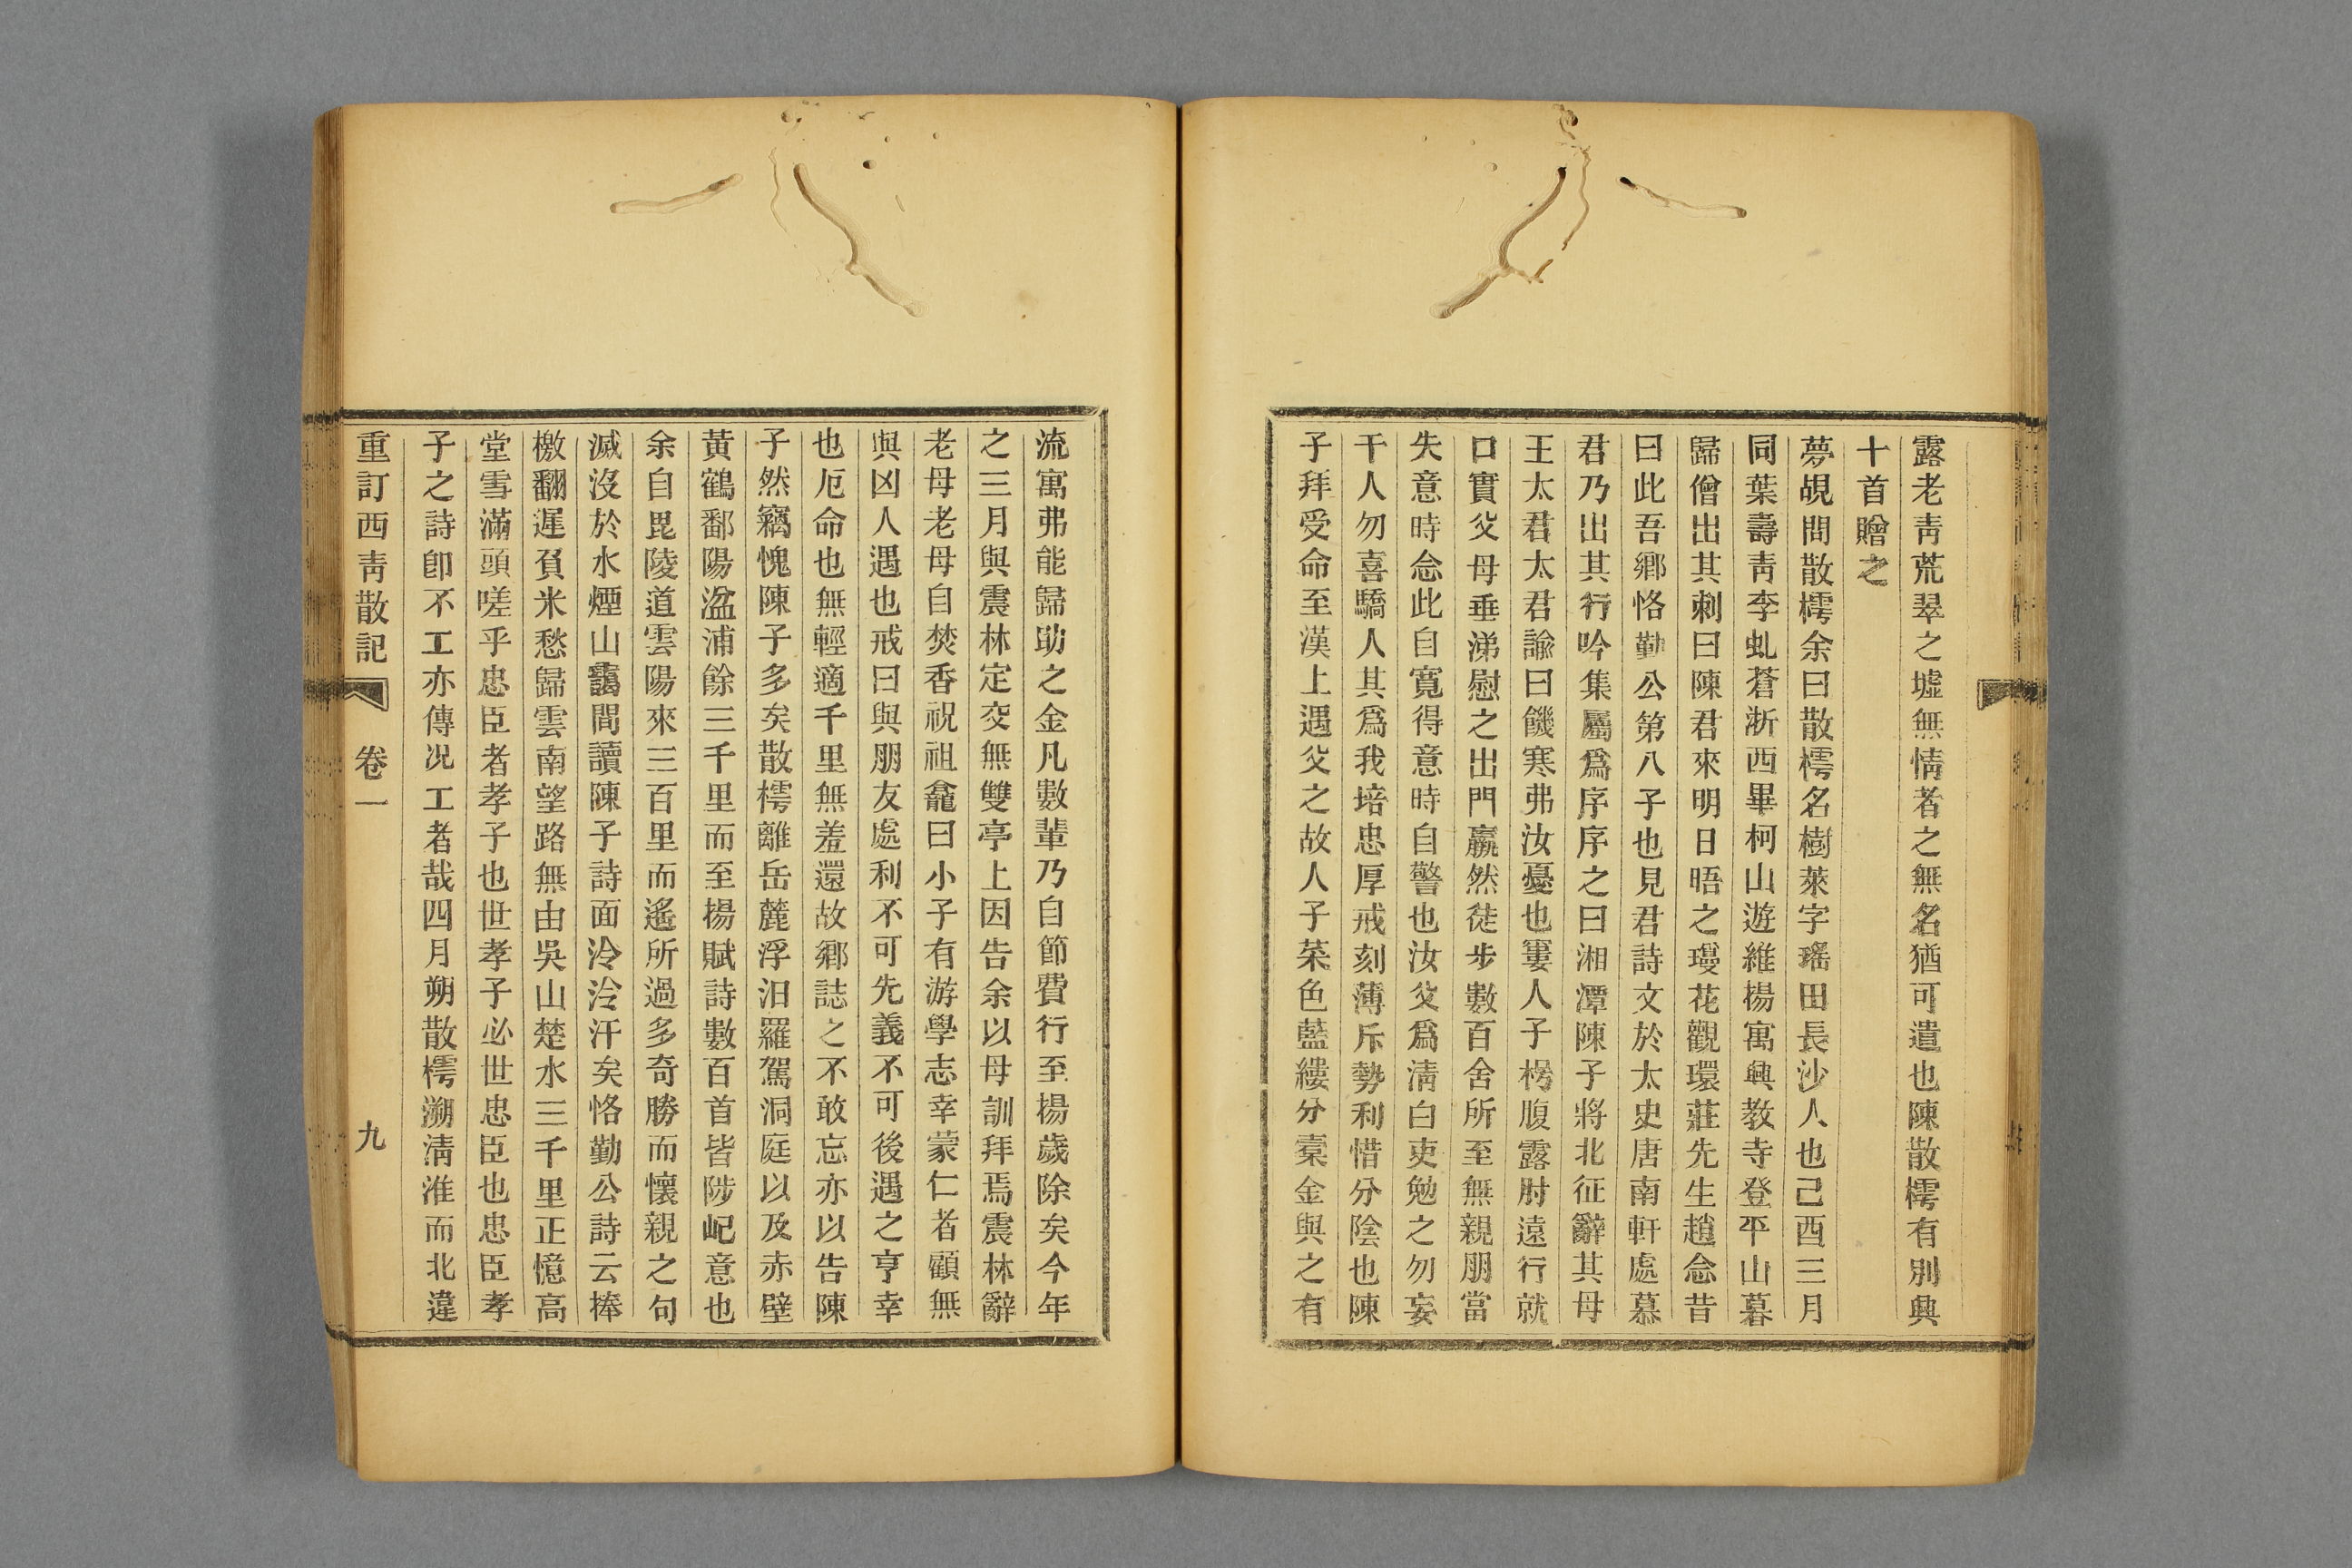 露老靑荒翠之墟無情者之無名猶可遣也陳散樗有別興
十首贈之
夢覘問散樗余曰散樗名樹萊字瑤田長沙人也己酉三月
同葉壽靑李虬蒼浙西畢柯山遊維楊寓興教寺登平山暮
歸僧出其刺曰陳君來明日晤之璦花觀環莊先生趙念昔
曰此吾鄉恪勤公第八子也見君詩文於太史唐南軒處慕
君乃出其行吟集屬爲序序之曰湘潭陳子將北征辭其母
王太君太君諭曰饑寒弗汝憂也窶人子枵腹露肘遠行就
口實父母垂涕慰之出門羸然徒步數百舍所至無親朋當
失意時念此自寬得意時自警也汝父爲淸白吏勉之勿妄
干人勿喜驕人其爲我培忠厚戒刻薄斥勢利惜分陰也陳
子拜受命至漢上遇父之故人子菜色藍縷分橐金與之有
流寓弗能歸助之金凡數輩乃自節費行至楊歲除矣今年
之三月與震林定交無雙亭上因告余以母訓拜焉震林辭
老母老母自焚香祝祖龕曰小子有游學志幸蒙仁者顧無
與凶人遇也戒曰與朋友處利不可先義不可後遇之亨幸
也厄命也無輕適千里無羞還故鄉誌之不敢忘亦以告陳
子然竊愧陳子多矣散樗離岳麓浮汨羅駕洞庭以及赤壁
黃鶴鄱陽湓浦餘三千里而至揚賦詩數百首皆陟屺意也
余自毘陵道雲陽來三百里而遙所過多奇勝而懷親之句
滅沒於水煙山靄間讀陳子詩面泠泠汗矣恪勤公詩云捧
檄翻遲負米愁歸雲南望路無由吳山楚水三千里正憶高
堂雪滿頭嗟乎忠臣者孝子也世孝子必世忠臣也忠臣孝
子之詩卽不工亦傳況工者哉四月朔散樗溯淸淮而北違
重訂西靑散記 卷一 九